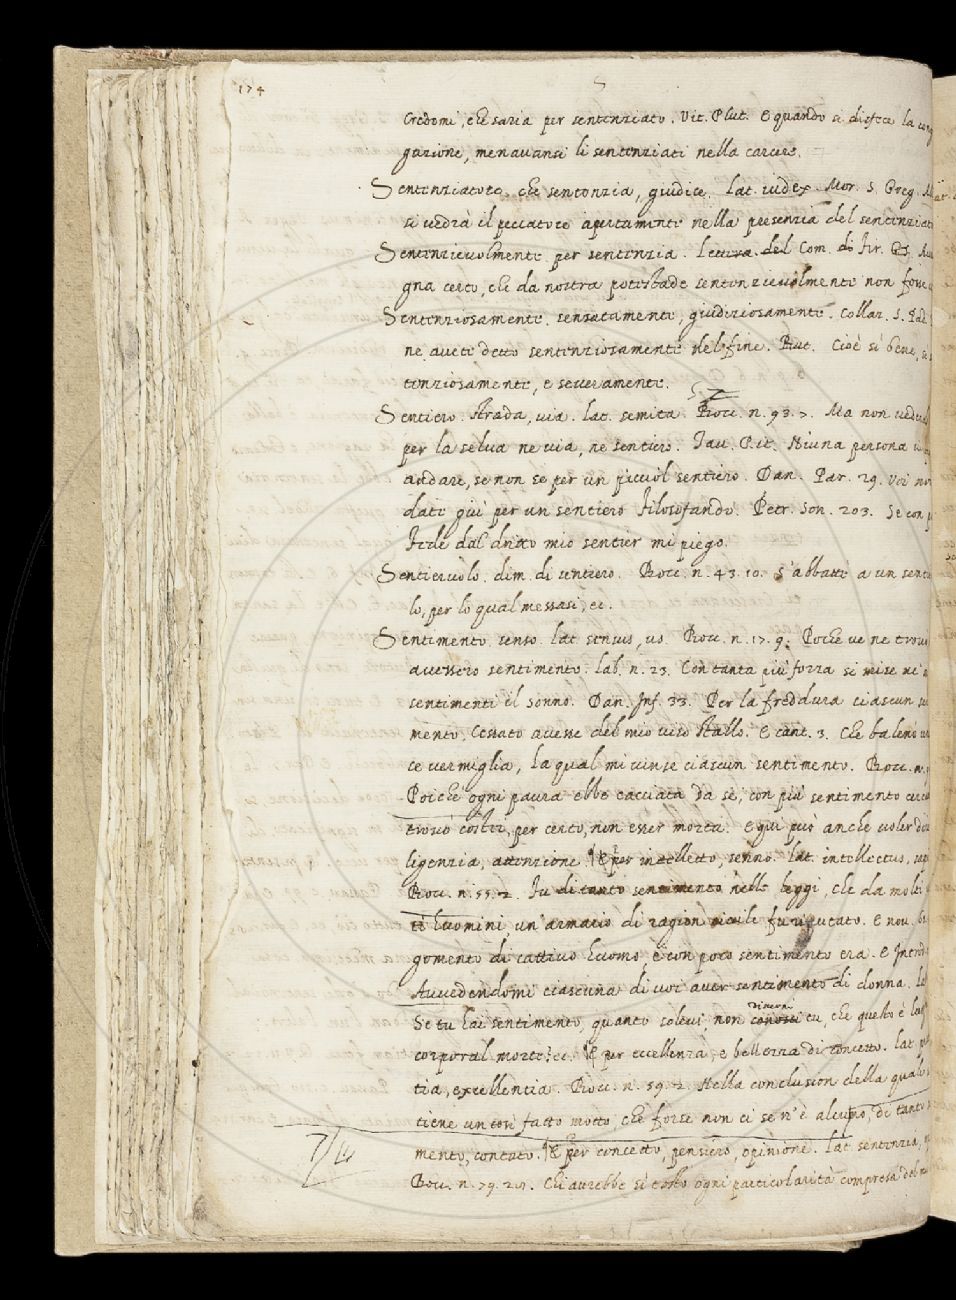 174
S
Credomi, che saria per sentenziato. Vit. Plut. E quando si disfece la cong
gazione, menavansi li sentenziati nella carcere.
Sentenziatore. che sentenzia, giudice. Lat. iudex. Mor. S. Greg.
si vedrà il peccatore apertamente nella presenzia del sentenziat
Sentenzievolmente. per sentenzia. Lettera del Com. di Fir.
gna certo, che da nostra potestade sentenzievolmente non fosse
Sentenziosamente. sensatamente, giudiziosamente. Collaz. S. Pad.
ne avete detto sentenziosamente nel fine. But. Cioè sì bene, sì
tenziosamente, e severamente.
Sentiero. strada, via. lat. semita. Bocc. n. 93. 7. Ma non veden
per la selva ne via, ne sentiero. Tav. Rit. Niuna persona vi
andare, se non se per un picciol sentiero. Dan. Par. 29. Voi non
dati giù per un sentiero Filosofando. Petr. Son. 203. Se con
Fede dal dritto mio sentier mi piego.
Sentieruolo. dim. di sentiero. Bocc. n. 43. 10. S'abbattè a un senti
lo, per lo qual messasi, ec.
Sentimento. senso. lat. sensus, us. Bocc. n. 17. 9. Poche ve ne trovo
avessero sentimento. Lab. n. 23. Con tanta più forza si mise ne'
sentimenti il sonno. Dan. Inf. 33. Per la freddura ciascun sen
mento. Cessato avesse del mio viso stallo. E cant. 3. Che balenò un
ce vermiglia, La qual mi vinse ciascun sentimento. Bocc. n.
Poiche ogni paura ebbe cacciata da se, con più sentimento cerca
trovò costei, per certo, non esser morta. E qui può anche voler di
ligenzia, attenzione. ¶ E per intelletto, senno. Lat. intellectus, sap
Bocc. n. 55. 2. Fu di tanto sentimento nelle leggi, che da molti
ti huomini, un'armario di ragion civile fu riputato. E nov.
gomento di cattivo huomo, e con poco sentimento era. E Introd
Avvedendomi ciascuna di voi aver sentimento di donna.
Se tu hai sentimento, quanto solevi, non conosci tu, che questo è
corporal morte? ec. ¶ E per eccellenza, e bellezza di concetto. Lat.
tia, excellentia. Bocc. n. 59. 2. Nella conclusion della quale
tiene un così fatto motto, che forse non ci se n'è alcuno, di tanto
mento, contato. ¶ E per concetto, pensiero, opinione. Lat. sentenzia,
Bocc. n. 79. 21. Chi avrebbe sì tosto ogni particolarità compresa del